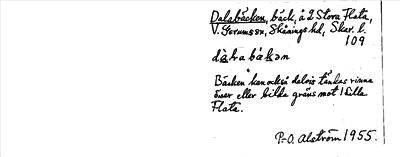 Dalabäcken, bäck, å 2 Stora Flata,
V. Gerumssn, Skånings hd, Skar. l.
109
Bäcken kan också delvis tänkas rinna
över eller bilda gräns mot 1 Lilla
Flata.
P.-O. Alström 1955.